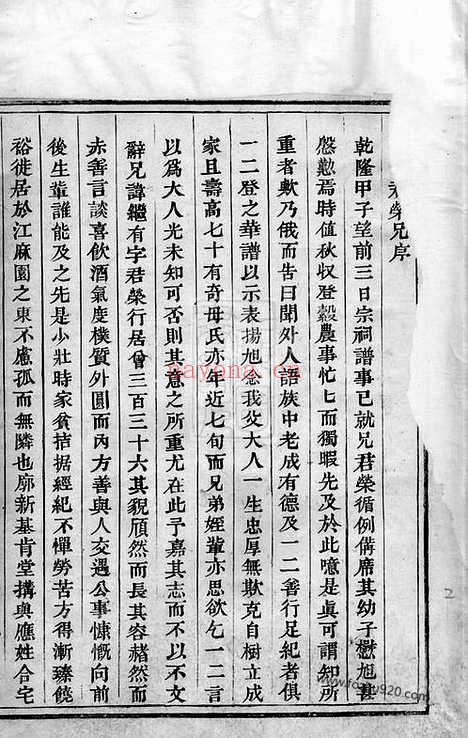 君榮兄序
乾隆甲子望前三日宗祠譜事已就兄君榮循例備席其幼子懋旭甚
慇懃焉時值秋収登糓農事忙匕而獨暇先及於此噫是眞可謂知所
重者歟乃俄而告曰聞外人語族中老成有德及一二善行足紀者俱
一二登之華譜以示表揚旭念我父大人一生忠厚無欺克自樹立成
家且壽高七十有奇毋氏亦年近七旬而兄弟姪輩亦思欲乞一二言
以爲大人光未知可否則其意之所重尤在此予嘉其志而不以不文
辭兄諱繼有字君榮行居曾三百三十六其貌頎然而長其容赭然而
赤善言談喜飲酒氣度樸質外圓而內方善與人交遇公事慷慨向前
後生輩誰能及之先是少壯時家貧拮据經紀不憚勞苦方得漸臻饒
裕徙居於江麻園之東不慮孤而無隣也廓新基肯堂搆與應姓合宅
nayona.cn
www.foxu920.com
2